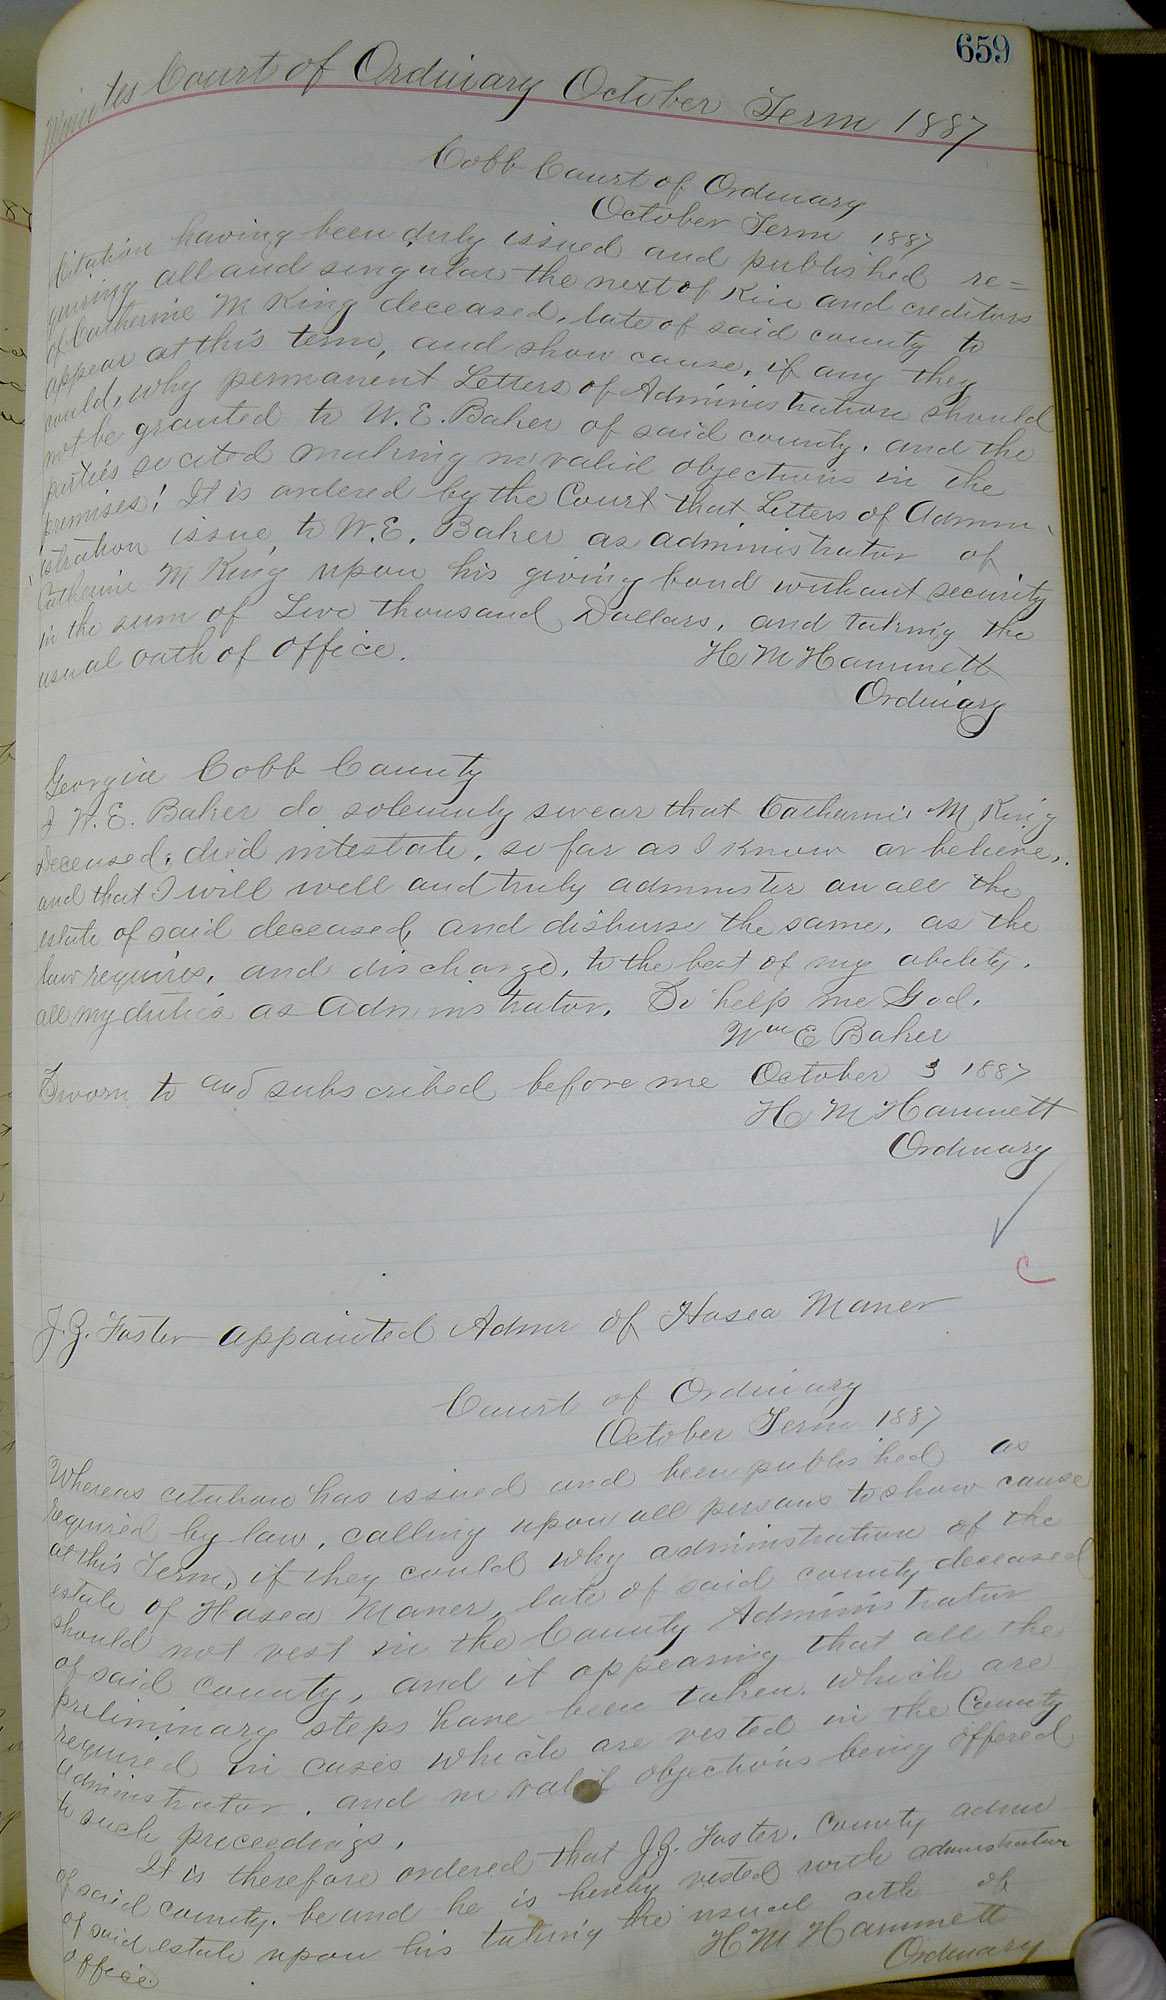 659
Minutes Court of Ordinary October Term 1887
Cobb Court of Ordinary
October Term 1887
Citation having been duly issued and published re=
quiring all and singular the next of Kin and creditors
of Catherine M King deceased, late of said county to
appear at this term, and show cause, if any they
could, why permanent Letters of Administration should
not be granted to W. E. Baker of said county, and the
parties so cited making no valid objections in the
premises! It is ordered by the Court that Letters of Admin-
istration issue to W. E. Baker as administrator of
Catherine M King upon his giving bond without security
in the sum of Two thousand Dollars, and taking the
usual oath of office.
H M Hammett
Ordinary
Georgia Cobb County
I W. E. Baker do solemnly swear that Catharine M King
deceased, died intestate, so far as I know or believe,
and that I will well and truly administer on all the
estate of said deceased, and disburse the same, as the
law requires, and discharge, to the best of my ability,
all my duties as Administrator. So help me God.
Wm E Baker
Sworn to and subscribed before me October 3 1887
H M Hammett
Ordinary
C
J. Z. Foster appointed Admr of Hosea Maner
Court of Ordinary
October Term 1887
Whereas citation has issued and been published as
required by law, calling upon all persons to show cause
at this Term, if they could why administration of the
estate of Hosea Maner, late of said county deceased
should not vest in the County Administrator
of said county, and it appearing that all the
preliminary steps have been taken which are
required in cases which are vested in the County
Administrator, and no valid objections being offered
to such proceedings,
It is therefore ordered that J. Z. Foster, County admr
of said county, be and he is hereby vested with administration
of said estate upon his taking the usual oath of
office
H M Hammett
Ordinary